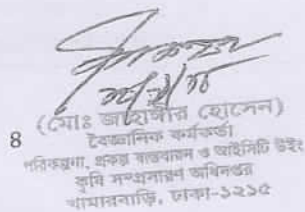 (মোঃ জাহাঙ্গীর হোসেন)
8
বৈজ্ঞানিক কর্মকর্তা
পরিকল্পনা, প্রকল্প বাস্তবায়ন ও আইসিটি উইং
কৃষি সম্প্রসারণ অধিদপ্তর
খামারবাড়ি, ঢাকা-১২১৫